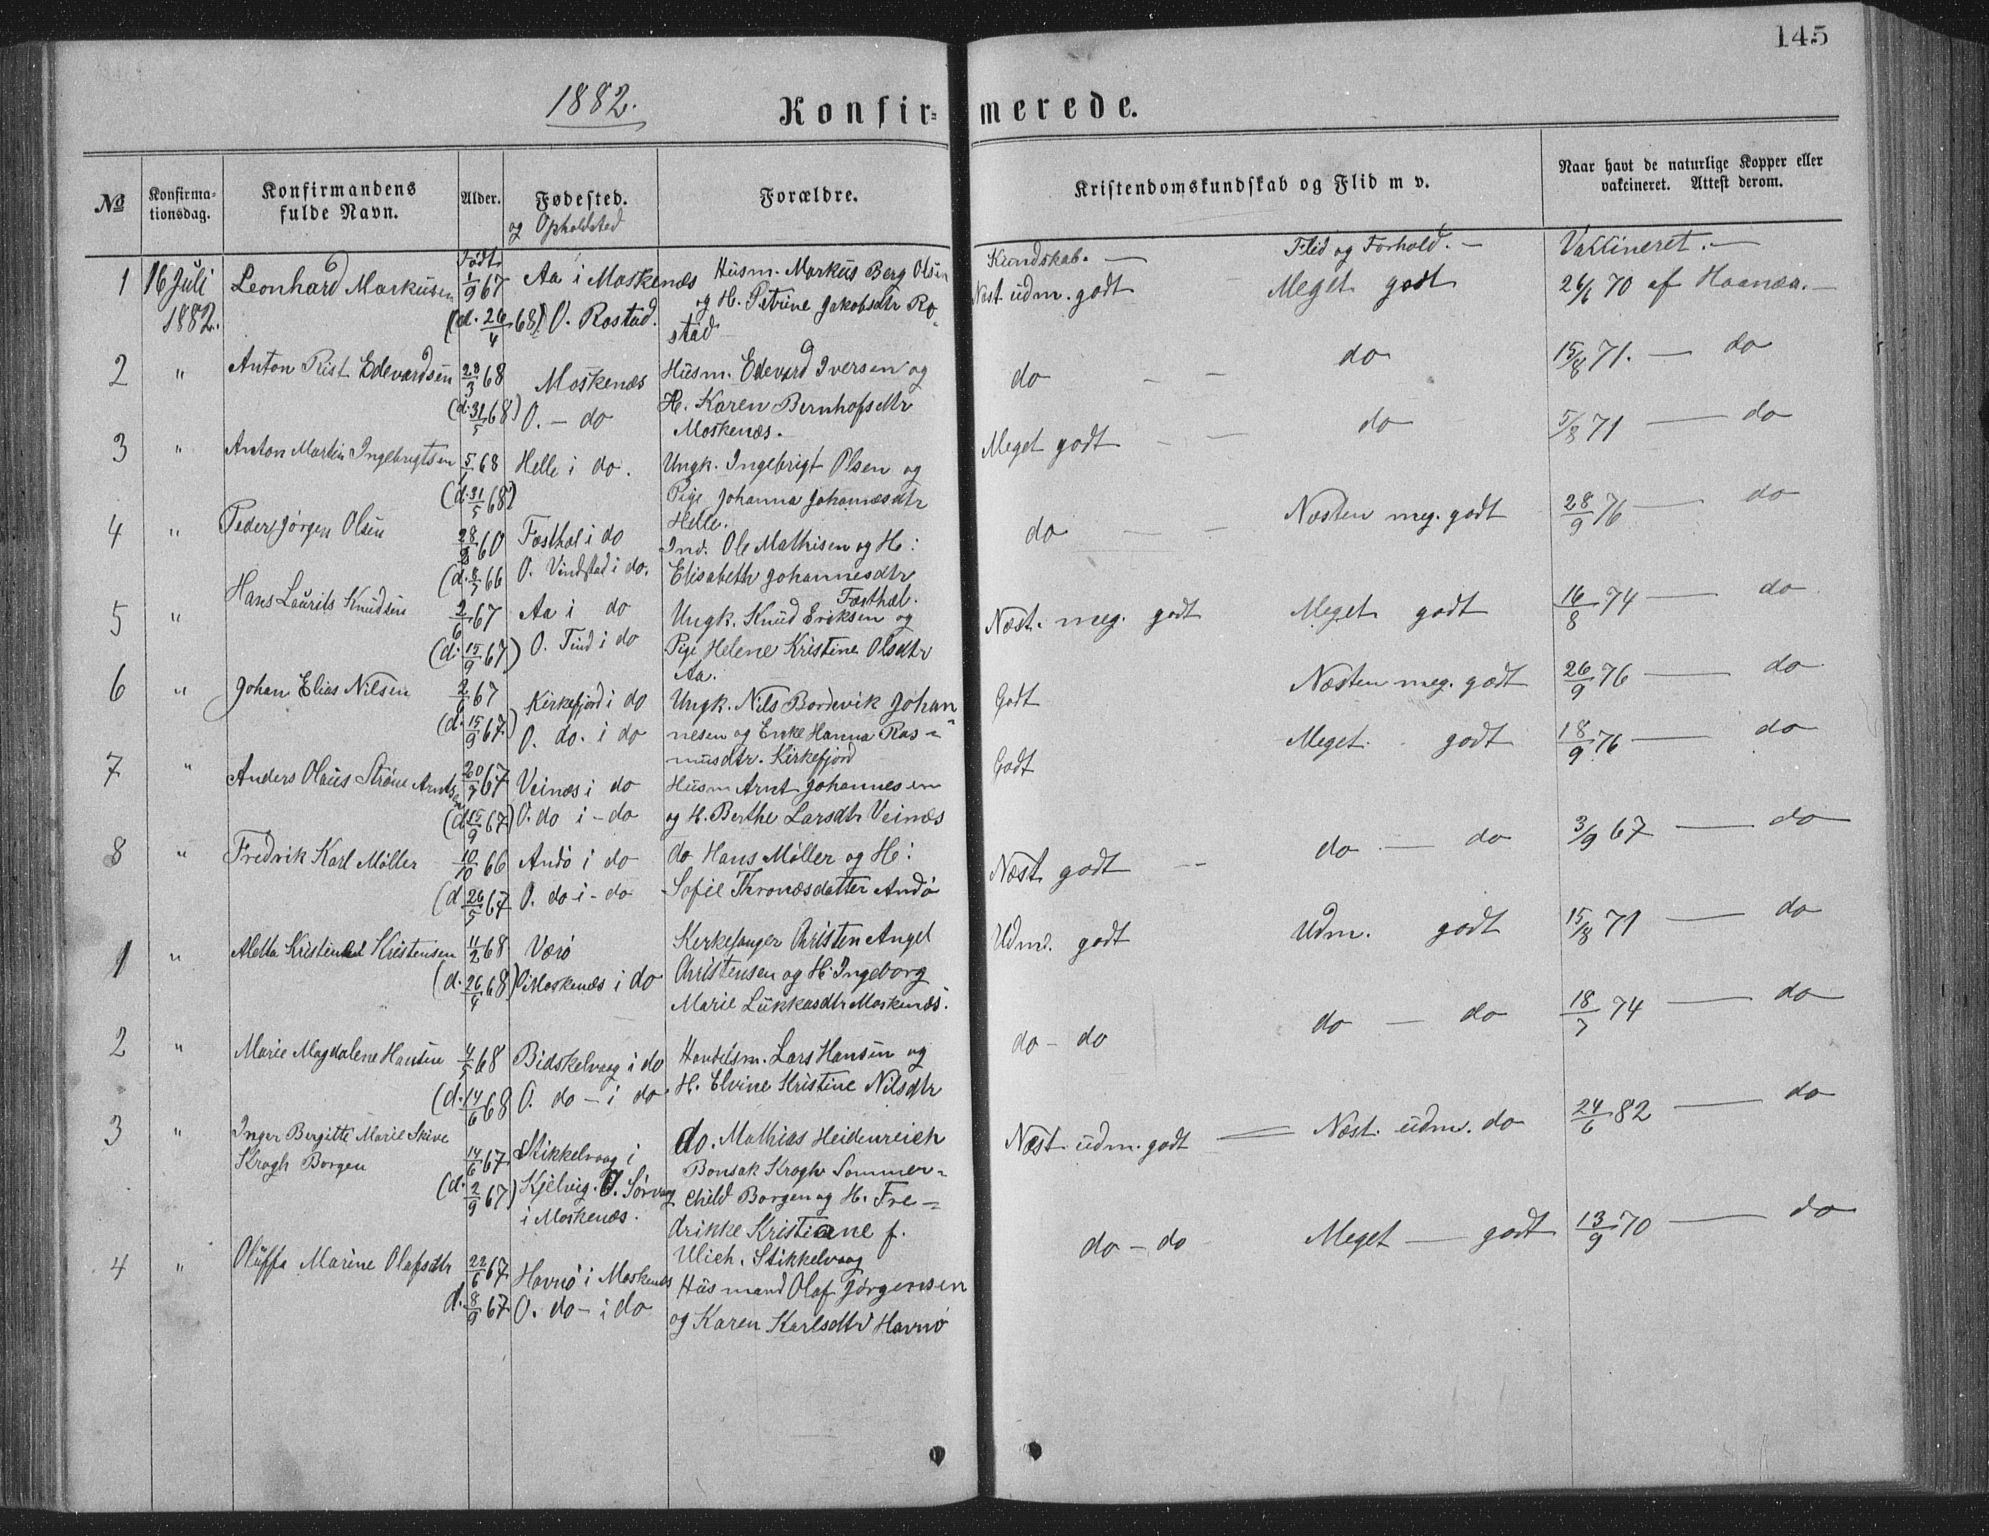 145
1882.
Konfir= merede.
№
Konfirma-
tionsdag.
Konfirmandens
fulde Navn.
Alder.
Fødested.
og Opholdsted
Forældre.
Kristendomskundskab og Flid m v.
Naar havt de naturlige Kopper eller
vakcineret. Attest derom.
Født
Kundskab. — Flid og Forhold. — Vakcineret. —
1 16 Juli Leonhard Markusen 1/9 67 Aa i Moskenæs Husm. Markus Berg Olsen Næst. udm. godt — Meget godt 26/6 70 af Haanæa. —
1882. (d. 26/4 68) O. Rostad. og H. Petrine Jakobsdtr Ro-
stad
2 " Anton Rist Edevardsen 23/3 68 Moskenæs Husm. Edevard Iversen og do — — do 15/8 71. — do
(d. 31/5 68) O. — do H. Karen Bernhofsdtr
Moskenæs.
3 " Anton Martin Ingebrigtsen 5/1 68 Helle i do. Ungk. Ingebrigt Olsen og Meget godt — — do 5/8 71 — do
(d. 31/5 68) Pige Johanna Johanesdtr
Helle.
4 " Peder Jørgen Olsen 28/8 60 Fæsthæl i do Ind. Ole Mathisen og H: do — — Næsten meg. godt 28/9 76 — do
(d. 8/7 66 O. Vindstad i do. Elisabeth Johannesdtr
Fæsthæl.
5 " Hans Laurits Knudsen 2/6 67 Aa i do Ungk. Knud Eriksen og Næst. meg. godt Meget godt 16/8 74 — do
(d. 15/9 67) O. Tind i do Pige Helene Kristine Olsdtr
Aa.
6 " Johan Elias Nilsen 2/6 67 Kirkefjord i do Ungk. Nils Bordevik Johan= Godt Næsten meg. godt 26/9 76 — do
(d. 15/9 67) O. do. i do nesen og Enke Hanna Ras=
musdtr. Kirkefjord
7 " Anders Olaus Strøm Arntsen 20/7 67 Veinæs i do Husm Arnt Johannesen Godt Meget godt 18/9 76 — do
(d. 15/9 67) O. do i — do og H. Berthe Larsdtr Veinæs
8 " Fredrik Karl Møller 10/10 66 Andø i do do Hans Møller og H: Næst godt — do — do 3/9 67 — do
(d. 26/5 67 O. do — i — do Sofie Thronæsdatter Andø
1 " Aletta Kristensen 11/2 68 Værø Kirkesanger Christen Angel Udmd. godt Udm. godt 15/8 71 — do
(d. 26/4 68) O Moskenæs i do Christensen og H. Ingeborg
Marie Lukkasdtr Moskenæs.
2 " Marie Magdalene Hansen 4/5 68 Bidskelvaag i do Handelsm. Lars Hansen og do — do do — do 18/7 74 — do
(d. 14/6 68 O. do — i do H. Elvine Kristine Nilsdtr
3 " Inger Bergitte Marie Skive 14/6 67 Stikkelvaag i do. Mathias Heidenreich Næst udm. godt — Næst. udm. do 24/6 82 — do
Krogh Borgen (d. 2/9 67) Kjelvig. O. Sørvaag Bonsak Krogh Sommer=
i Moskenæs. child Borgen og H. Fre=
drikke Kristiane f.
Ulich. Stikkelvaag
4 " Oluffa Marine Olafsdtr 22/6 67 Havnø i Moskenæs Husmand Olaf Jørgensen do — do Meget — godt 13/9 70 — do
d. 8/9 67 O. do — i do og Karen Karlsdtr Havnø